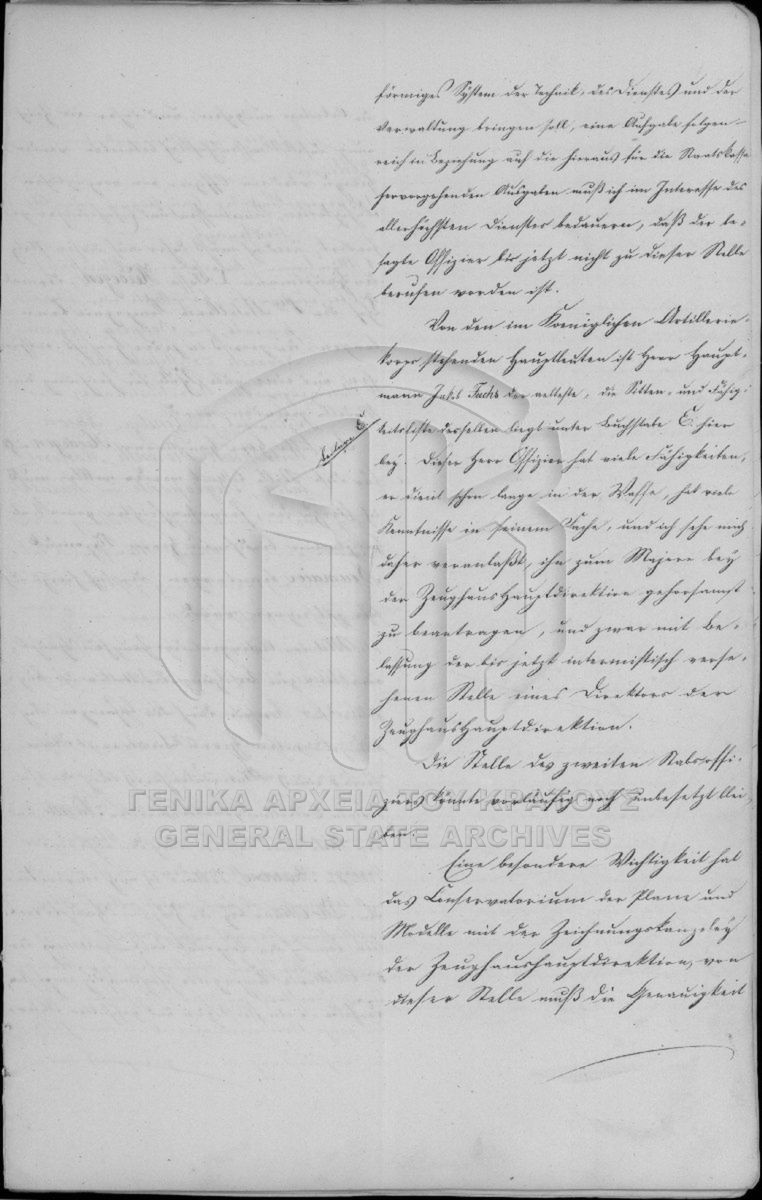 förmiges System der Technik, des Dienstes und der
Verwaltung bringen soll, eine Aufgabe folgen-
reich in Beziehung auf die hieraus für die Staatskasse
hervorgehenden Ausgaben muß ich im Interesse des
allerhöchsten Dienstes bedauern, daß der be-
sagte Offizier bis jetzt nicht zu dieser Stelle
berufen worden ist.
Von den im Koeniglichen Artillerie-
korps stehenden Hauptleuten ist Herr Haupt-
mann Fuchs der aelteste, die Sitten- und Fähig-
keitsliste desselben liegt unter Buchstabe C. hier
Beilage C.
bey. Dieser Herr Offizier hat viele Fähigkeiten,
er dient schon lange in der Waffe, hat viele
Kenntnisse in seinem Fache, und ich sehe mich
daher veranlaßt, ihn zum Majore bey
der Zeughaushauptdirektion gehorsamst
zu beantragen, und zwar mit Be-
lassung der bis jetzt interimistisch verse-
henen Stelle eines Direktors der
Zeughaushauptdirektion.
Die Stelle des zweiten Stabsoffi-
ziers könnte vorläufig noch unbesetzt blei-
ben.
Eine besondere Wichtigkeit hat
das Conservatorium der Plane und
Modelle mit der Zeichnungskanzeley
der Zeughaushauptdirektion, von
dieser Stelle muß die Genauigkeit
ΓΕΝΙΚΑ ΑΡΧΕΙΑ ΤΟΥ ΚΡΑΤΟΥΣ
GENERAL STATE ARCHIVES